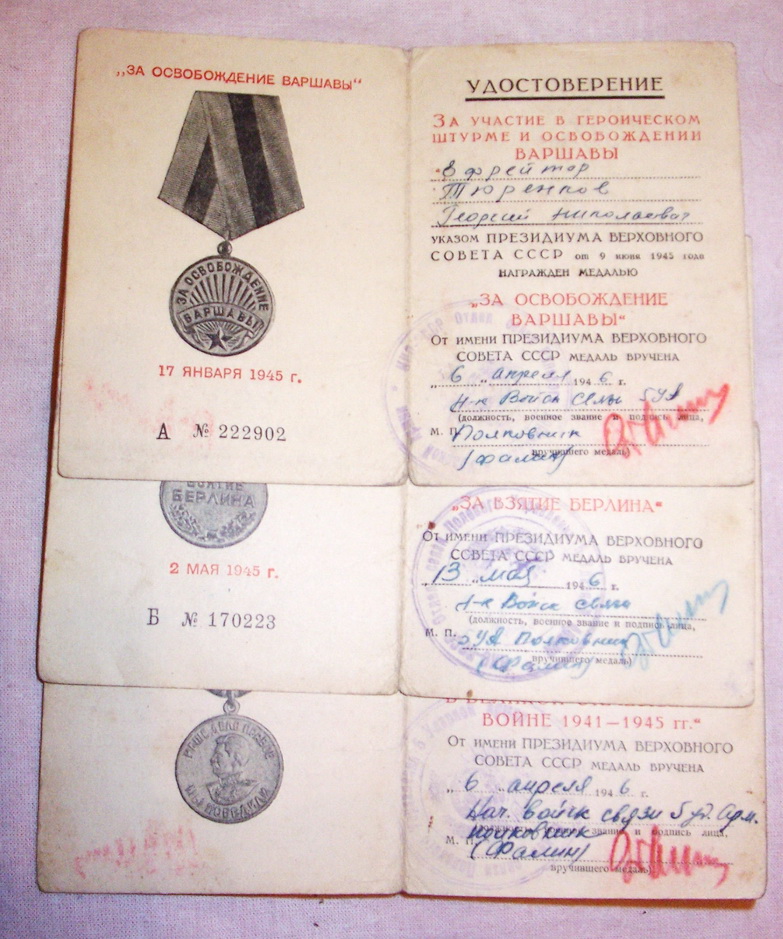 „ЗА ОСВОБОЖДЕНИЕ ВАРШАВЫ“
ЗА ОСВОБОЖДЕНИЕ
ВАРШАВЫ
17 ЯНВАРЯ 1945 г.
А № 222902
УДОСТОВЕРЕНИЕ
ЗА УЧАСТИЕ В ГЕРОИЧЕСКОМ
ШТУРМЕ И ОСВОБОЖДЕНИИ
ВАРШАВЫ
Ефрейтор
Тюренков
Георгий Николаевич
УКАЗОМ ПРЕЗИДИУМА ВЕРХОВНОГО
СОВЕТА СССР от 9 июня 1945 года
НАГРАЖДЕН МЕДАЛЬЮ
„ЗА ОСВОБОЖДЕНИЕ
ВАРШАВЫ“
От имени ПРЕЗИДИУМА ВЕРХОВНОГО
СОВЕТА СССР МЕДАЛЬ ВРУЧЕНА
„6„ апреля 1946 г.
Н-к Войск Связи 5УА
(должность, военное звание и подпись лица,
М. П. Полковник
вручившего медаль)
(Фалин)
ВЗЯТИЕ
БЕРЛИНА
2 МАЯ 1945 г.
Б № 170223
„ЗА ВЗЯТИЕ БЕРЛИНА“
От имени ПРЕЗИДИУМА ВЕРХОВНОГО
СОВЕТА СССР МЕДАЛЬ ВРУЧЕНА
„13„ мая 1946 г.
Н-к Войск Связи
(должность, военное звание и подпись лица,
М. П. 5УА Полковник
вручившего медаль)
(Фалин)
НАШЕ ДЕЛО ПРАВОЕ
МЫ ПОБЕДИЛИ
ВОЙНЕ 1941—1945 гг.“
От имени ПРЕЗИДИУМА ВЕРХОВНОГО
СОВЕТА СССР МЕДАЛЬ ВРУЧЕНА
„6„ апреля 1946 г.
Нач. войск связи 5 уд. Арм.
звание и подпись лица,
М. П. полковник
(Фалин)
вручившего медаль)